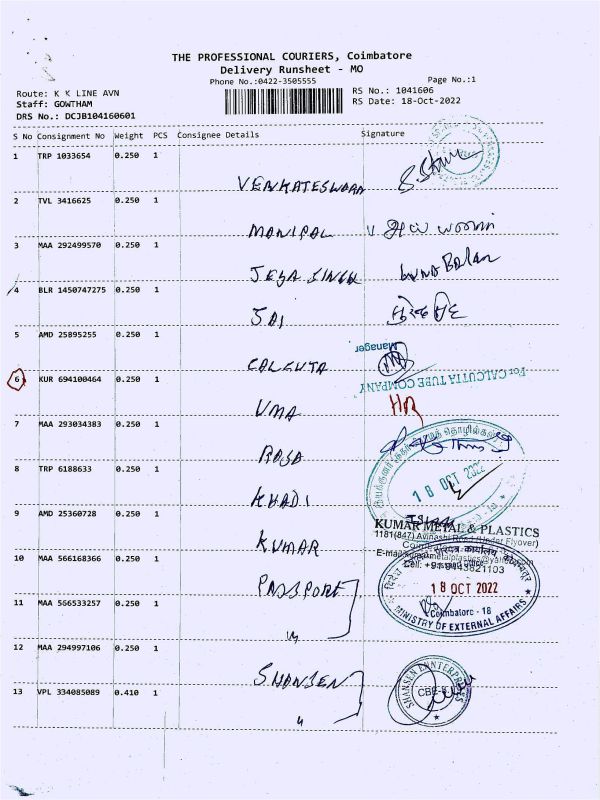 THE PROFESSIONAL COURIERS, Coimbatore
Delivery Runsheet - MO
Phone No.:0422-3505555 Page No.:1
Route: K K LINE AVN RS No.: 1041606
Staff: GOWTHAM RS Date: 18-Oct-2022
DRS No.: DCJB104160601
S No Consignment No Weight PCS Consignee Details Signature
1 TRP 1033654 0.250 1
VENKATESWARA
2 TVL 3416625 0.250 1
MANIPAL
3 MAA 292499570 0.250 1
JEYA SINGH
4 BLR 1450747275 0.250 1
JAI
5 AMD 25895255 0.250 1
Manager
CALCUTA
For CALCUTTA TUBE COMPANY
6 KUR 694100464 0.250 1
UMA HR
7 MAA 293034383 0.250 1
ROJA
8 TRP 6188633 0.250 1
18 OCT 2022
KHADI
9 AMD 25360728 0.250 1
KUMAR METAL & PLASTICS
1181(847) Avinashi Road (Under Flyover)
KUMAR
Cell: +91 9443821103
10 MAA 566168366 0.250 1
PASSPORT
18 OCT 2022
11 MAA 566533257 0.250 1
Coimbatore - 18
MINISTRY OF EXTERNAL AFFAIRS
"
12 MAA 294997106 0.250 1
SHANSEN
SHANSEN ENNTERPRISES
13 VPL 334085089 0.410 1
"